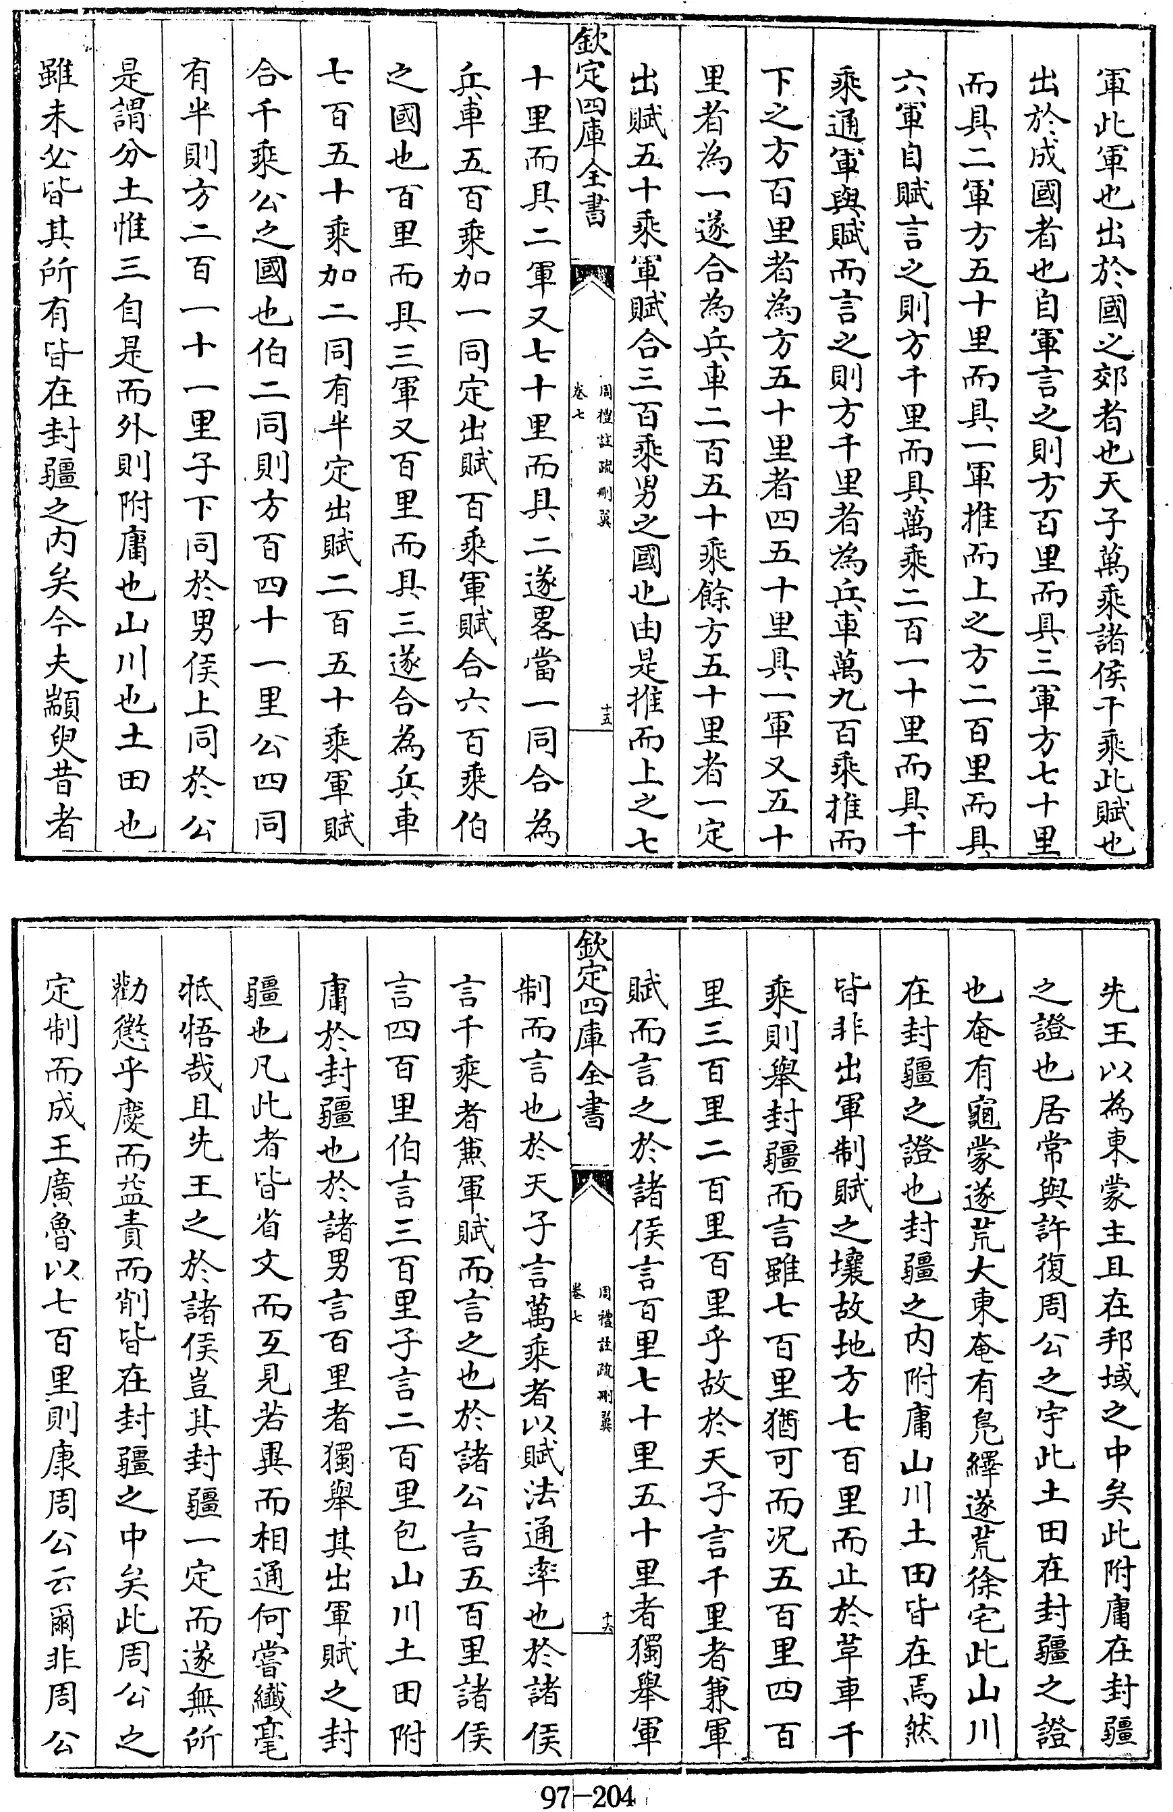 軍此軍也出於國之郊者也天子萬乘諸侯千乘此賦也
出於成國者也自軍言之則方百里而具三軍方七十里
而具二軍方五十里而具一軍推而上之方二百里而具
六軍自賦言之則方千里而具萬乘二百一十里而具千
乘通軍與賦而言之則方千里者為兵車萬九百乘推而
下之方百里者為方五十里者四五十里具一軍又五十
里者為一遂合為兵車二百五十乘餘方五十里者一定
出賦五十乘軍賦合三百乘男之國也由是推而上之七
欽定四庫全書
周禮註疏刪翼
卷七
十五
十里而具二軍又七十里而具二遂畧當一同合為
兵車五百乘加一同定出賦百乘軍賦合六百乘伯
之國也百里而具三軍又百里而具三遂合為兵車
七百五十乘加二同有半定出賦二百五十乘軍賦
合千乘公之國也伯二同則方百四十一里公四同
有半則方二百一十一里子下同於男侯上同於公
是謂分土惟三自是而外則附庸也山川也土田也
雖未必皆其所有皆在封疆之內矣今夫顓臾昔者
先王以為東蒙主且在邦域之中矣此附庸在封疆
之證也居常與許復周公之宇此土田在封疆之證
也奄有龜蒙遂荒大東奄有鳧繹遂荒徐宅此山川
在封疆之證也封疆之內附庸山川土田皆在焉然
皆非出軍制賦之壤故地方七百里而止於革車千
乘則舉封疆而言雖七百里猶可而況五百里四百
里三百里二百里百里乎故於天子言千里者兼軍
賦而言之於諸侯言百里七十里五十里者獨舉軍
欽定四庫全書
周禮註疏刪翼
卷七
十六
制而言也於天子言萬乘者以賦法通率也於諸侯
言千乘者兼軍賦而言之也於諸公言五百里諸侯
言四百里伯言三百里子言二百里包山川土田附
庸於封疆也於諸男言百里者獨舉其出軍賦之封
疆也凡此者皆省文而互見若異而相通何嘗纖毫
牴牾哉且先王之於諸侯豈其封疆一定而遂無所
勸懲乎慶而益責而削皆在封疆之中矣此周公之
定制而成王廣魯以七百里則康周公云爾非周公
97-204